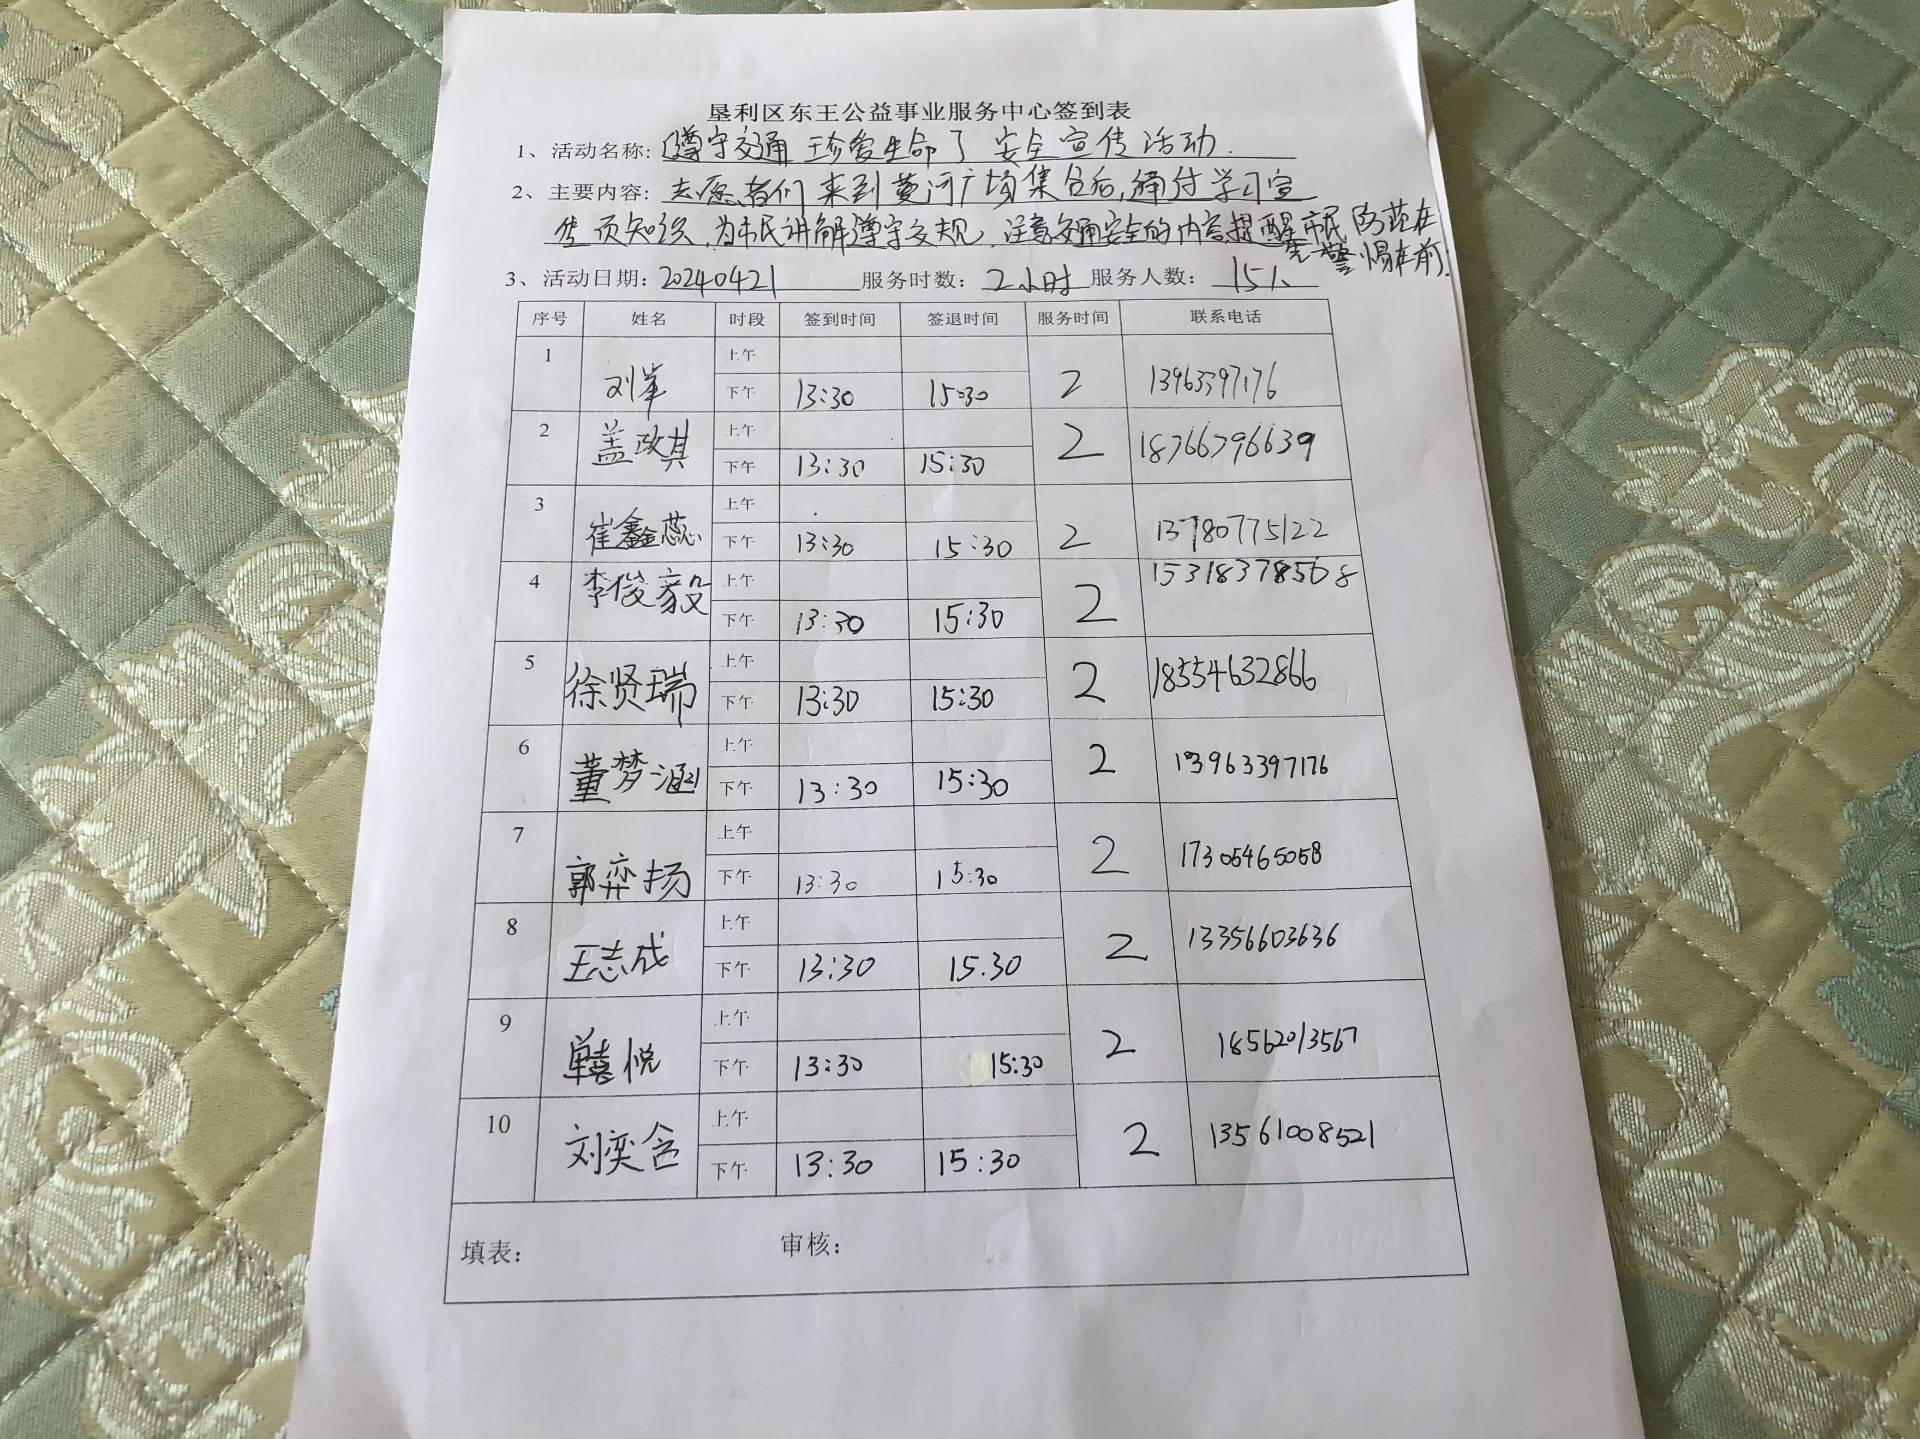 垦利区东王公益事业服务中心签到表
1、活动名称: 「遵守交通 珍爱生命」安全宣传活动.
2、主要内容: 志愿者们来到黄河广场集合后,通过学习宣
传页知识,为市民讲解遵守交规,注意交通安全的内容,提醒市民防范在
先 警惕在前.
3、活动日期: 20240421 服务时数: 2小时 服务人数: 15人
序号 姓名 时段 签到时间 签退时间 服务时间 联系电话
1 刘峯 上午
下午 13:30 15:30 2 13963397176
2 盖政其 上午
下午 13:30 15:30 2 18766796639
3 崔鑫蕊 上午
下午 13:30 15:30 2 13780775122
4 李俊毅 上午 15318378568
下午 13:30 15:30 2
5 徐贤瑞 上午
下午 13:30 15:30 2 18554632866
6 董梦涵 上午
下午 13:30 15:30 2 13963397176
7 郭弈扬 上午
下午 13:30 15:30 2 17305465058
8 王志成 上午
下午 13:30 15.30 2 13356603636
9 单禧悦 上午
下午 13:30 15:30 2 18562013567
10 刘奕含 上午
下午 13:30 15:30 2 13561008521
填表: 审核: